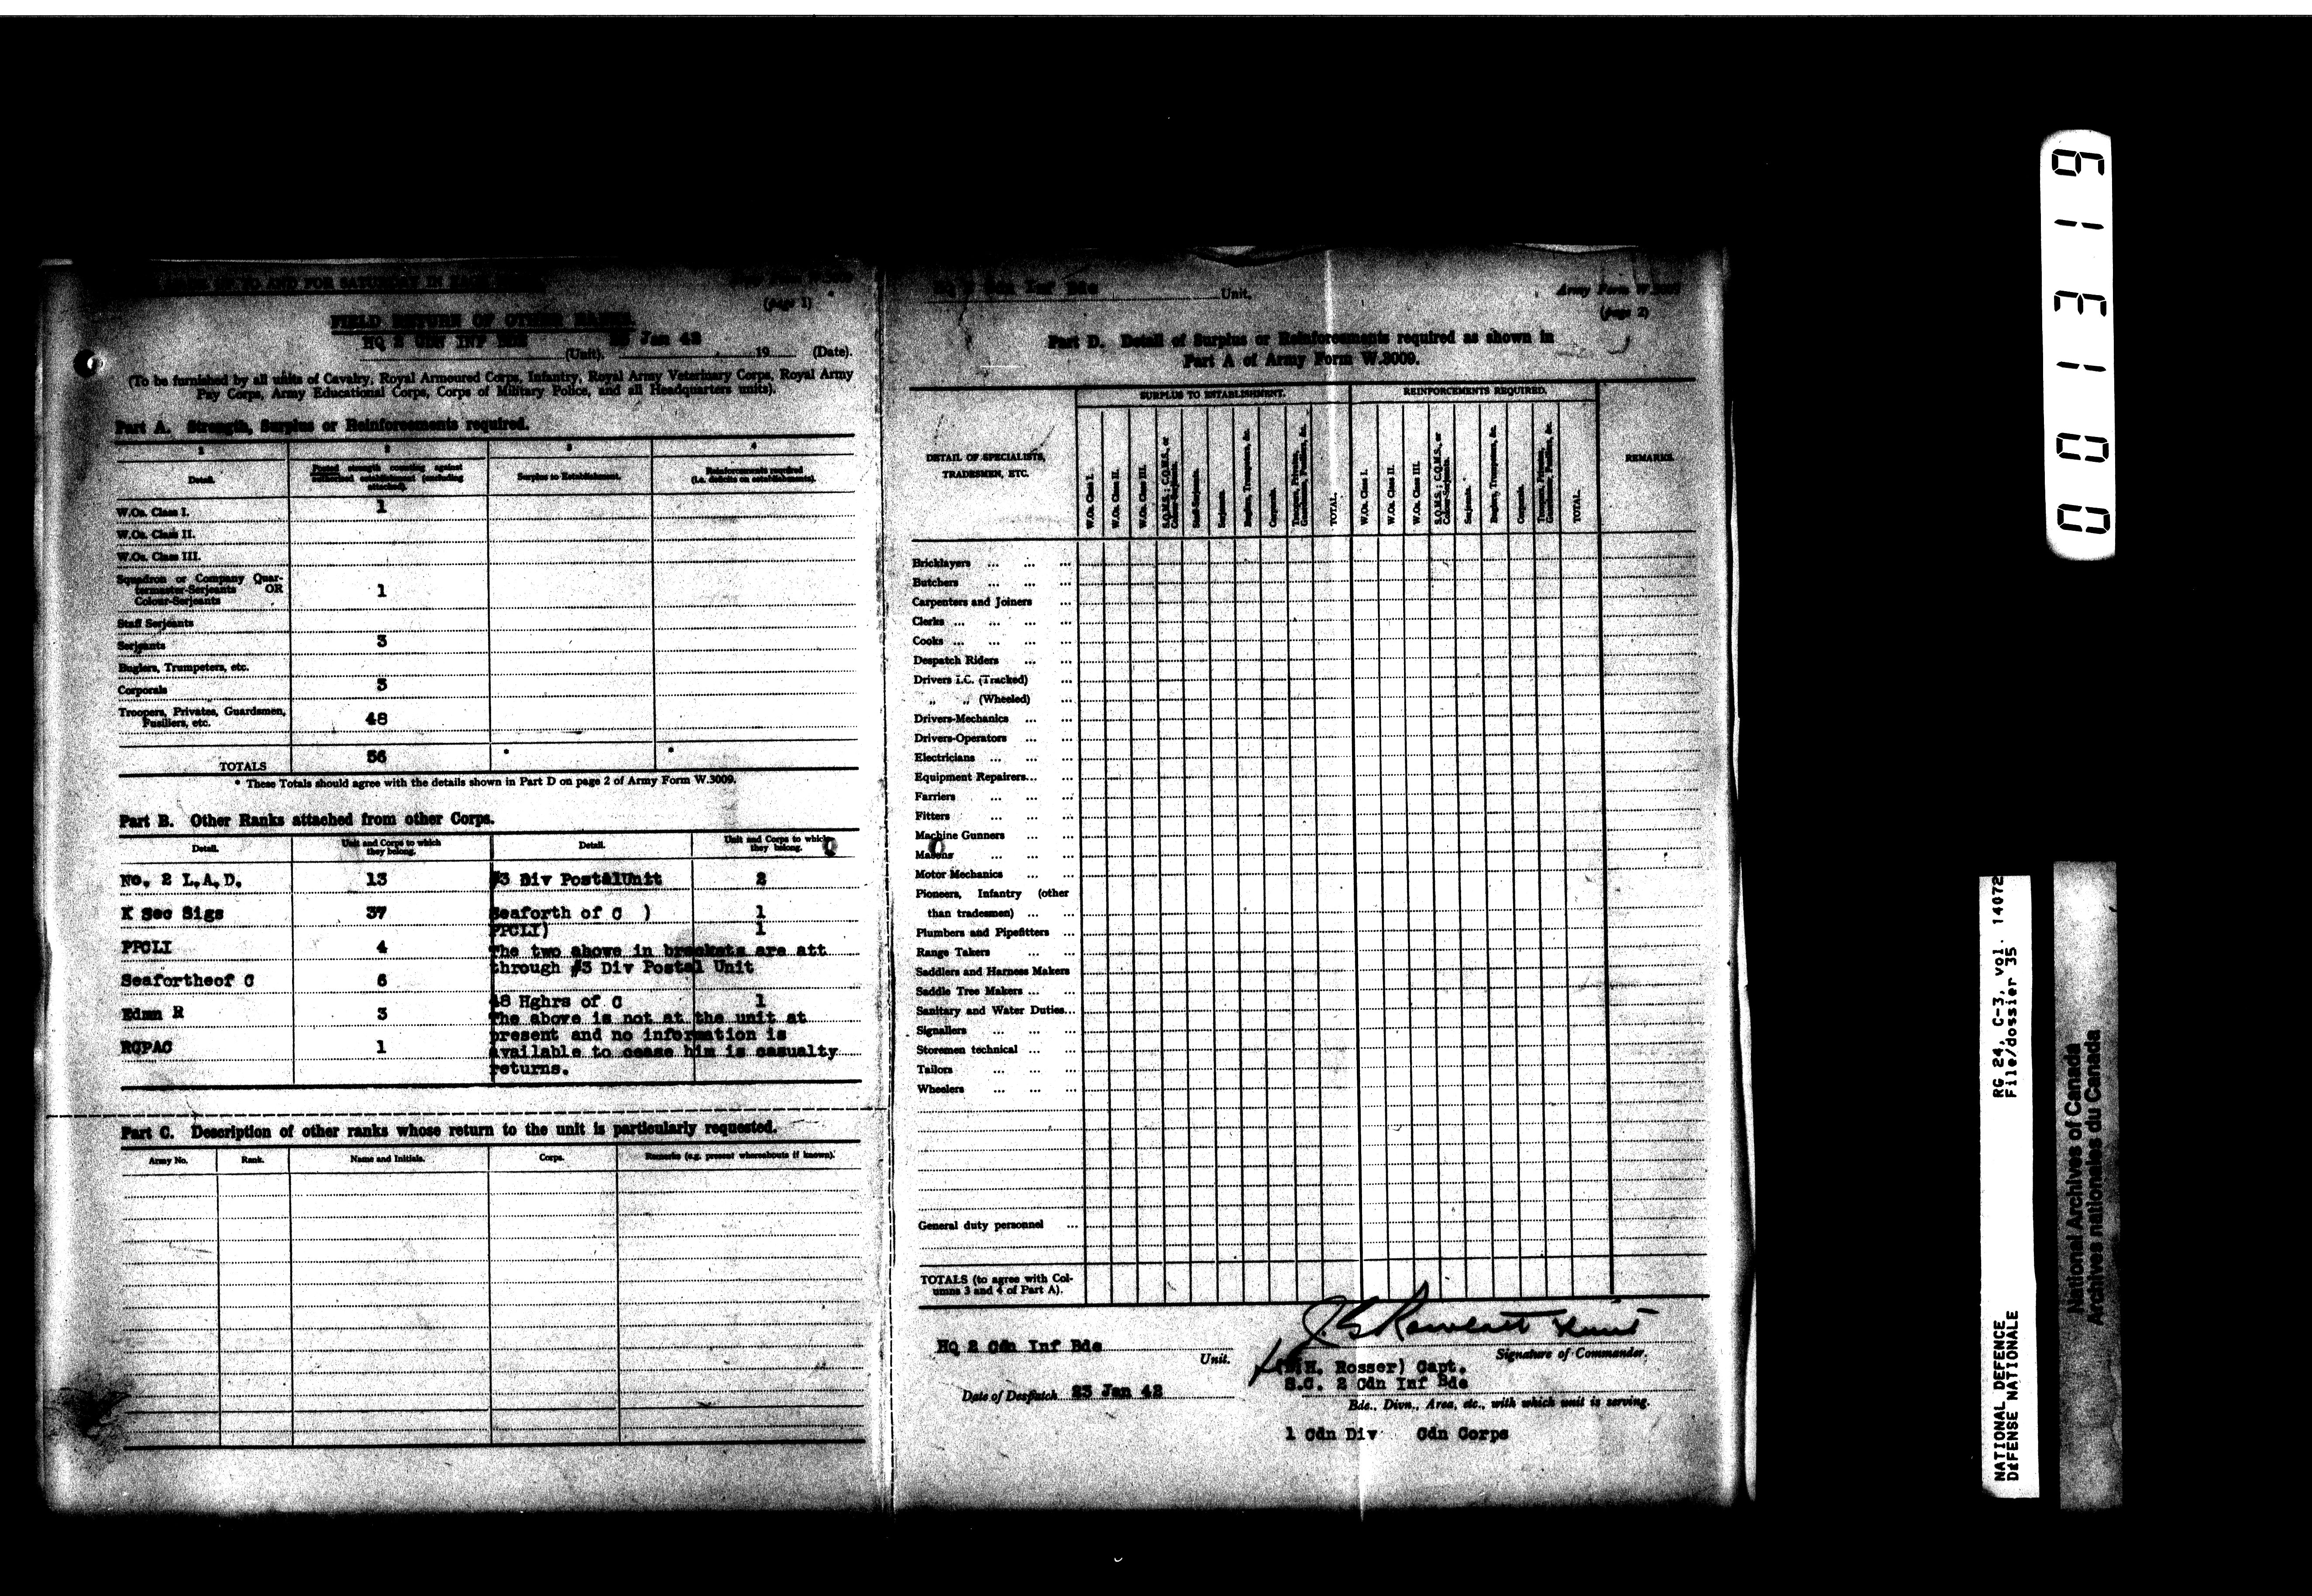 AND FOR SATURDAY IN
(page 1)
FIELD RETURN OF OTHER RANKS.
HQ 2 CDN INF BDE (Unit). Jan 42 19 (Date).
(To be furnished by all units of Cavalry, Royal Armoured Corps, Infantry, Royal Army Veterinary Corps, Royal Army
Pay Corps, Army Educational Corps, Corps of Military Police, and all Headquarters units).
Part A. Strength, Surplus or Reinforcements required.
1 2 3 4
Detail. Posted strength counting against authorized establishment (excluding attached). Surplus to Establishment. Reinforcements required (i.e. deficits on establishments).
W.Os. Class I. 1
W.Os. Class II.
W.Os. Class III.
Squadron or Company Quar-
termaster-Serjeants OR
Colour-Serjeants 1
Staff Serjeants
Serjeants 3
Buglers, Trumpeters, etc.
Corporals 3
Troopers, Privates, Guardsmen,
Fusiliers, etc. 48
TOTALS 56 * *
* These Totals should agree with the details shown in Part D on page 2 of Army Form W.3009.
Part B. Other Ranks attached from other Corps.
Detail. Unit and Corps to which they belong. Detail. Unit and Corps to which they belong.
No. 2 L.A.D. 13 #3 Div PostalUnit 2
K Sec Sigs 37 Seaforth of C ) 1
PPCLI) 1
PPCLI 4 The two above in brackets are att
through #3 Div Postal Unit
Seafortheof C 6
48 Hghrs of C 1
Edmn R 3 The above is not at the unit at
present and no information is
RCPAC 1 available to cease him is casualty
returns.
Part C. Description of other ranks whose return to the unit is particularly requested.
Army No. Rank. Name and Initials. Corps. Remarks (e.g. present whereabouts if known).
HQ 2 Cdn Inf Bde Unit.
Army Form W.3009
(page 2)
Part D. Detail of Surplus or Reinforcements required as shown in
Part A of Army Form W.3009.
DETAIL OF SPECIALISTS,
TRADESMEN, ETC.
SURPLUS TO ESTABLISHMENT.
W.Os. Class I.
W.Os. Class II.
W.Os. Class III.
S.Q.M.S.; C.Q.M.S., or Colour-Serjeants.
Staff-Serjeants.
Serjeants.
Buglers, Trumpeters, &c.
Corporals.
Troopers, Privates, Guardsmen, Fusiliers, &c.
TOTAL.
REINFORCEMENTS REQUIRED.
W.Os. Class I.
W.Os. Class II.
W.Os. Class III.
S.Q.M.S.; C.Q.M.S., or Colour-Serjeants.
Serjeants.
Buglers, Trumpeters, &c.
Corporals.
Troopers, Privates, Guardsmen, Fusiliers, &c.
TOTAL.
REMARKS.
Bricklayers ... ... ...
Butchers ... ... ...
Carpenters and Joiners ...
Clerks ... ... ... ...
Cooks ... ... ... ...
Despatch Riders ... ...
Drivers I.C. (Tracked) ...
„ „ (Wheeled) ...
Drivers-Mechanics ... ...
Drivers-Operators ... ...
Electricians ... ... ...
Equipment Repairers... ...
Farriers ... ... ...
Fitters ... ... ...
Machine Gunners ... ...
Masons ... ... ...
Motor Mechanics ... ...
Pioneers, Infantry (other
than tradesmen) ... ...
Plumbers and Pipefitters ...
Range Takers ... ...
Saddlers and Harness Makers
Saddle Tree Makers ... ...
Sanitary and Water Duties...
Signallers ... ... ...
Storemen technical ... ...
Tailors ... ... ...
Wheelers ... ... ...
General duty personnel ...
TOTALS (to agree with Col-
umns 3 and 4 of Part A).
HQ 2 Cdn Inf Bde Unit.
Signature of Commander.
H. Rosser) Capt.
S.C. 2 Cdn Inf Bde
Date of Despatch 23 Jan 42
Bde., Divn., Area, etc., with which unit is serving.
1 Cdn Div Cdn Corps
NATIONAL DEFENCE RG 24, C-3, vol. 14072
DÉFENSE NATIONALE File/dossier 35
National Archives of Canada
Archives nationales du Canada